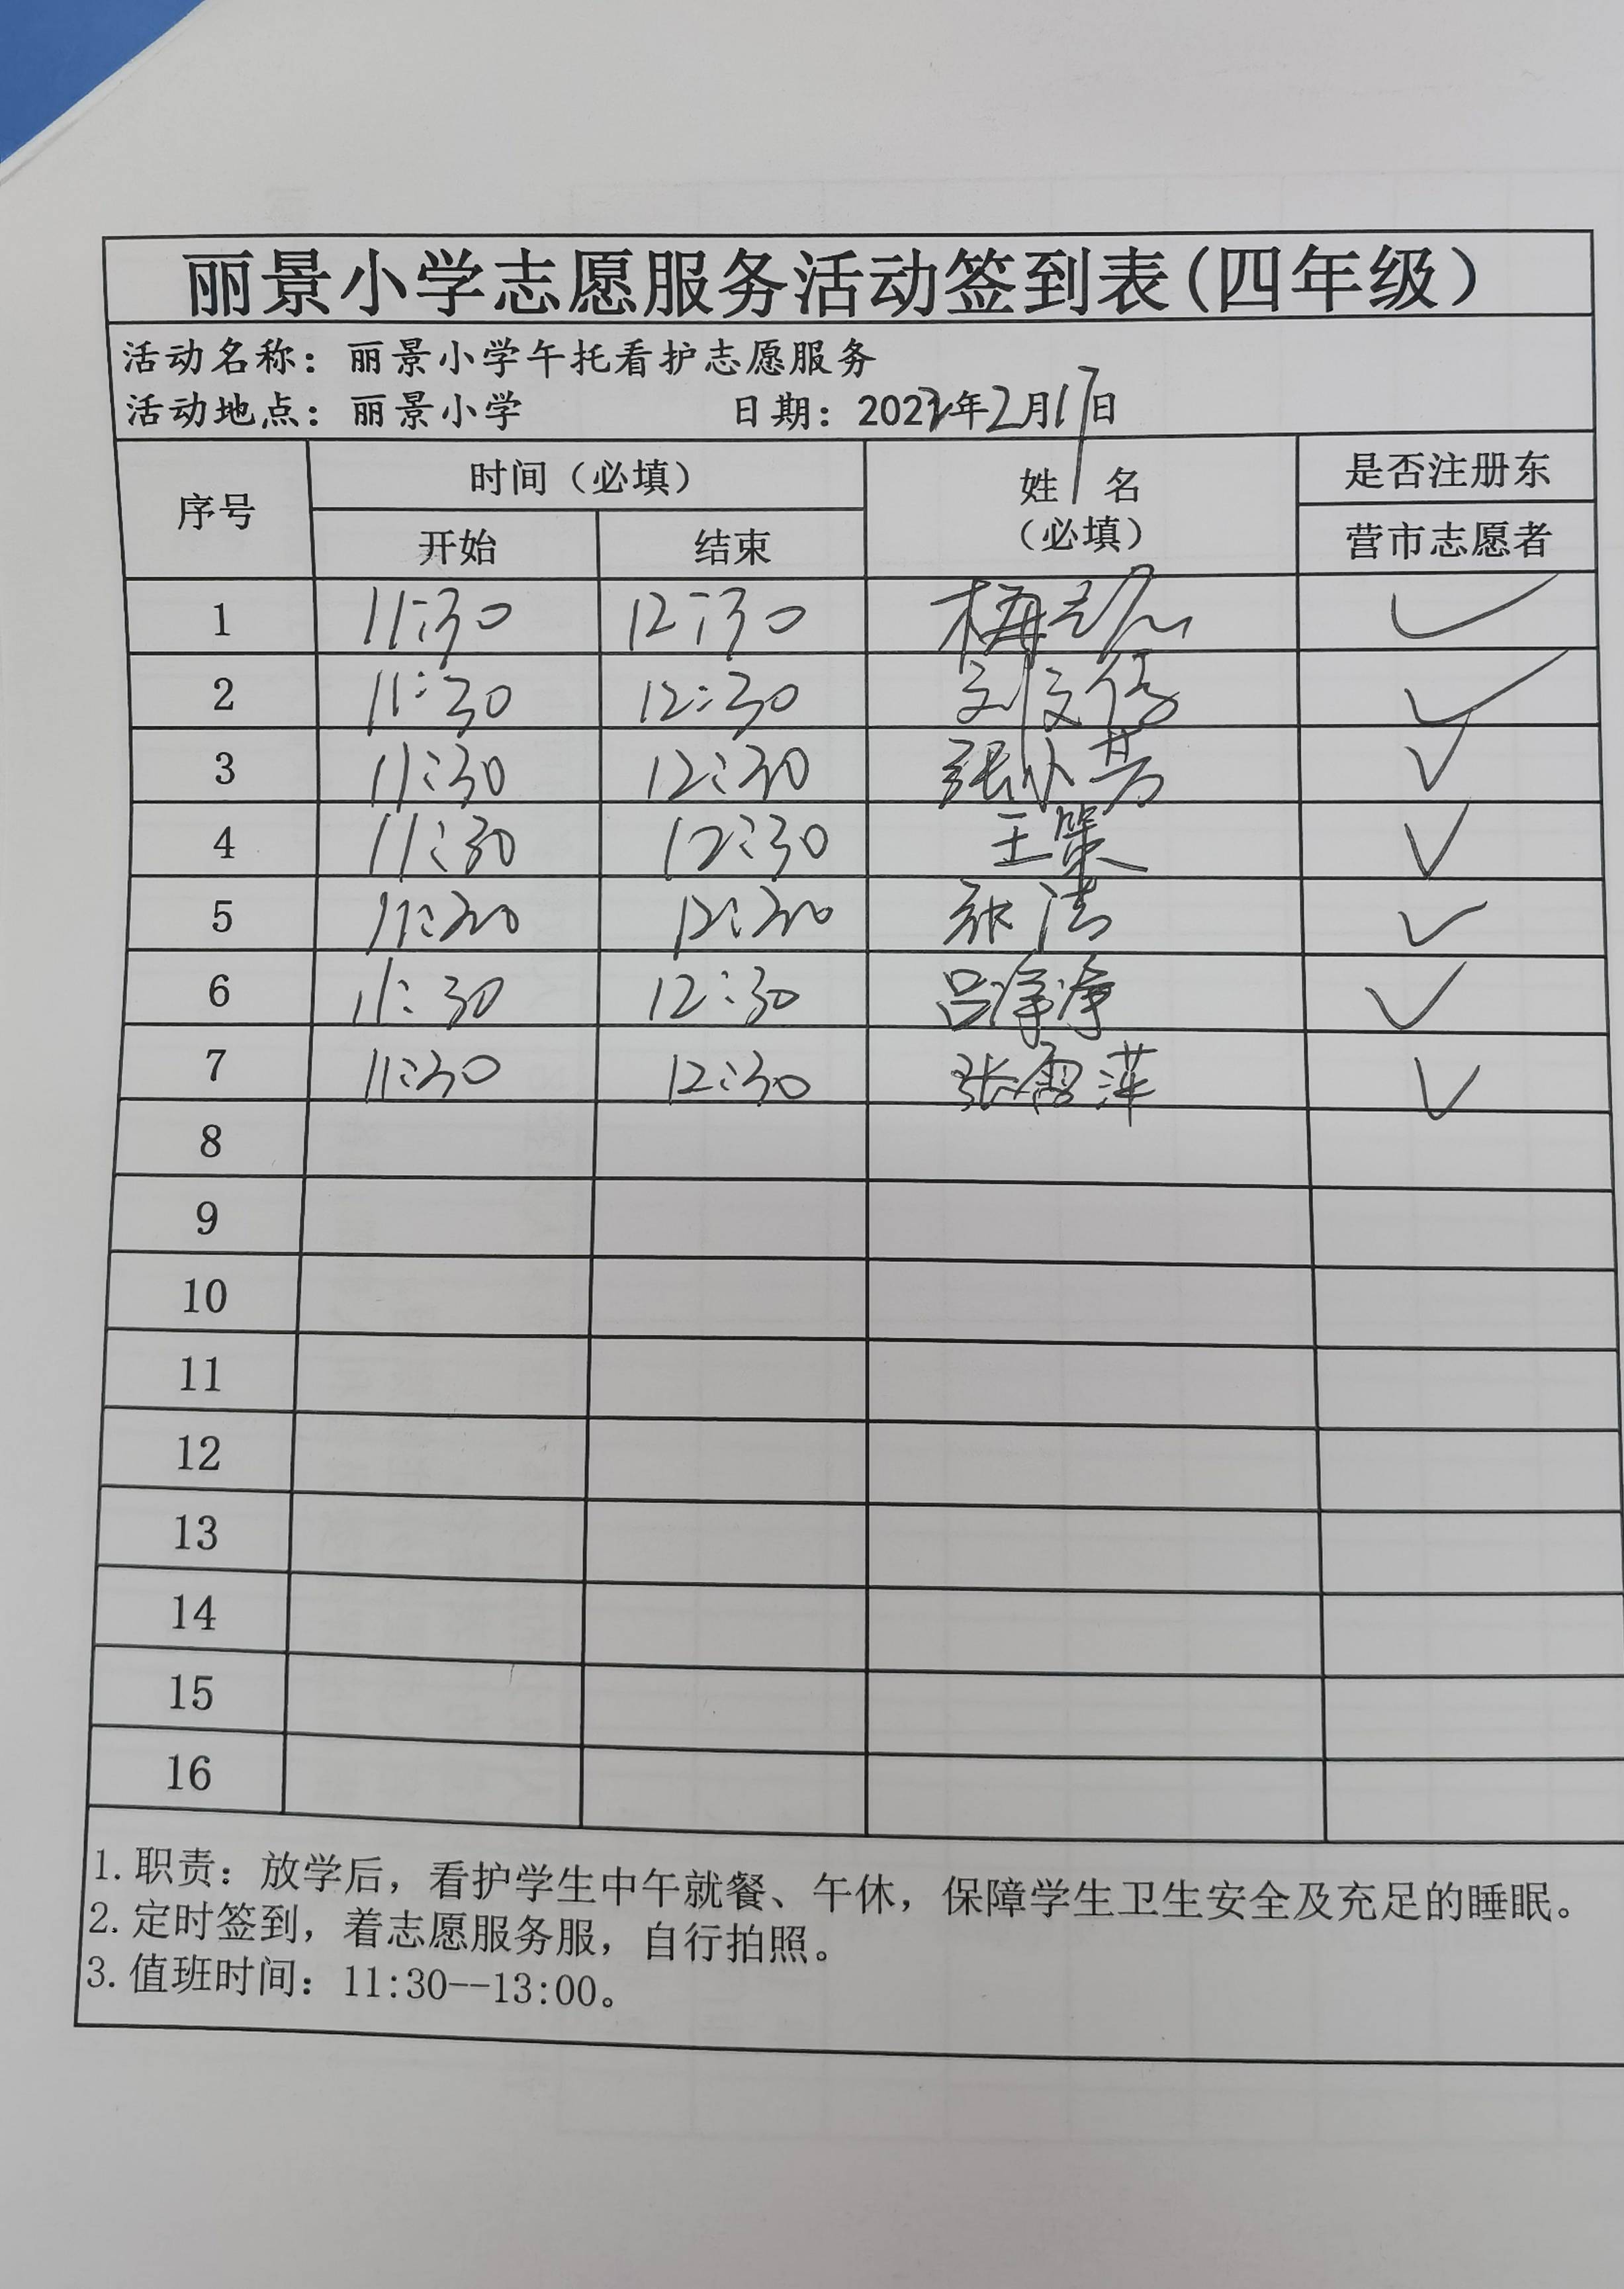 丽景小学志愿服务活动签到表(四年级)
活动名称：丽景小学午托看护志愿服务
活动地点：丽景小学 日期：2022年2月17日
序号 时间（必填） 姓名 是否注册东
开始 结束 （必填） 营市志愿者
1 11:30 12:30 梅 ✓
2 11:30 12:30 刘文倩 ✓
3 11:30 12:30 张小芳 ✓
4 11:30 12:30 王策 ✓
5 11:30 12:30 张洁 ✓
6 11:30 12:30 吕净净 ✓
7 11:30 12:30 张雪萍 ✓
8
9
10
11
12
13
14
15
16
1.职责：放学后，看护学生中午就餐、午休，保障学生卫生安全及充足的睡眠。
2.定时签到，着志愿服务服，自行拍照。
3.值班时间：11:30--13:00。